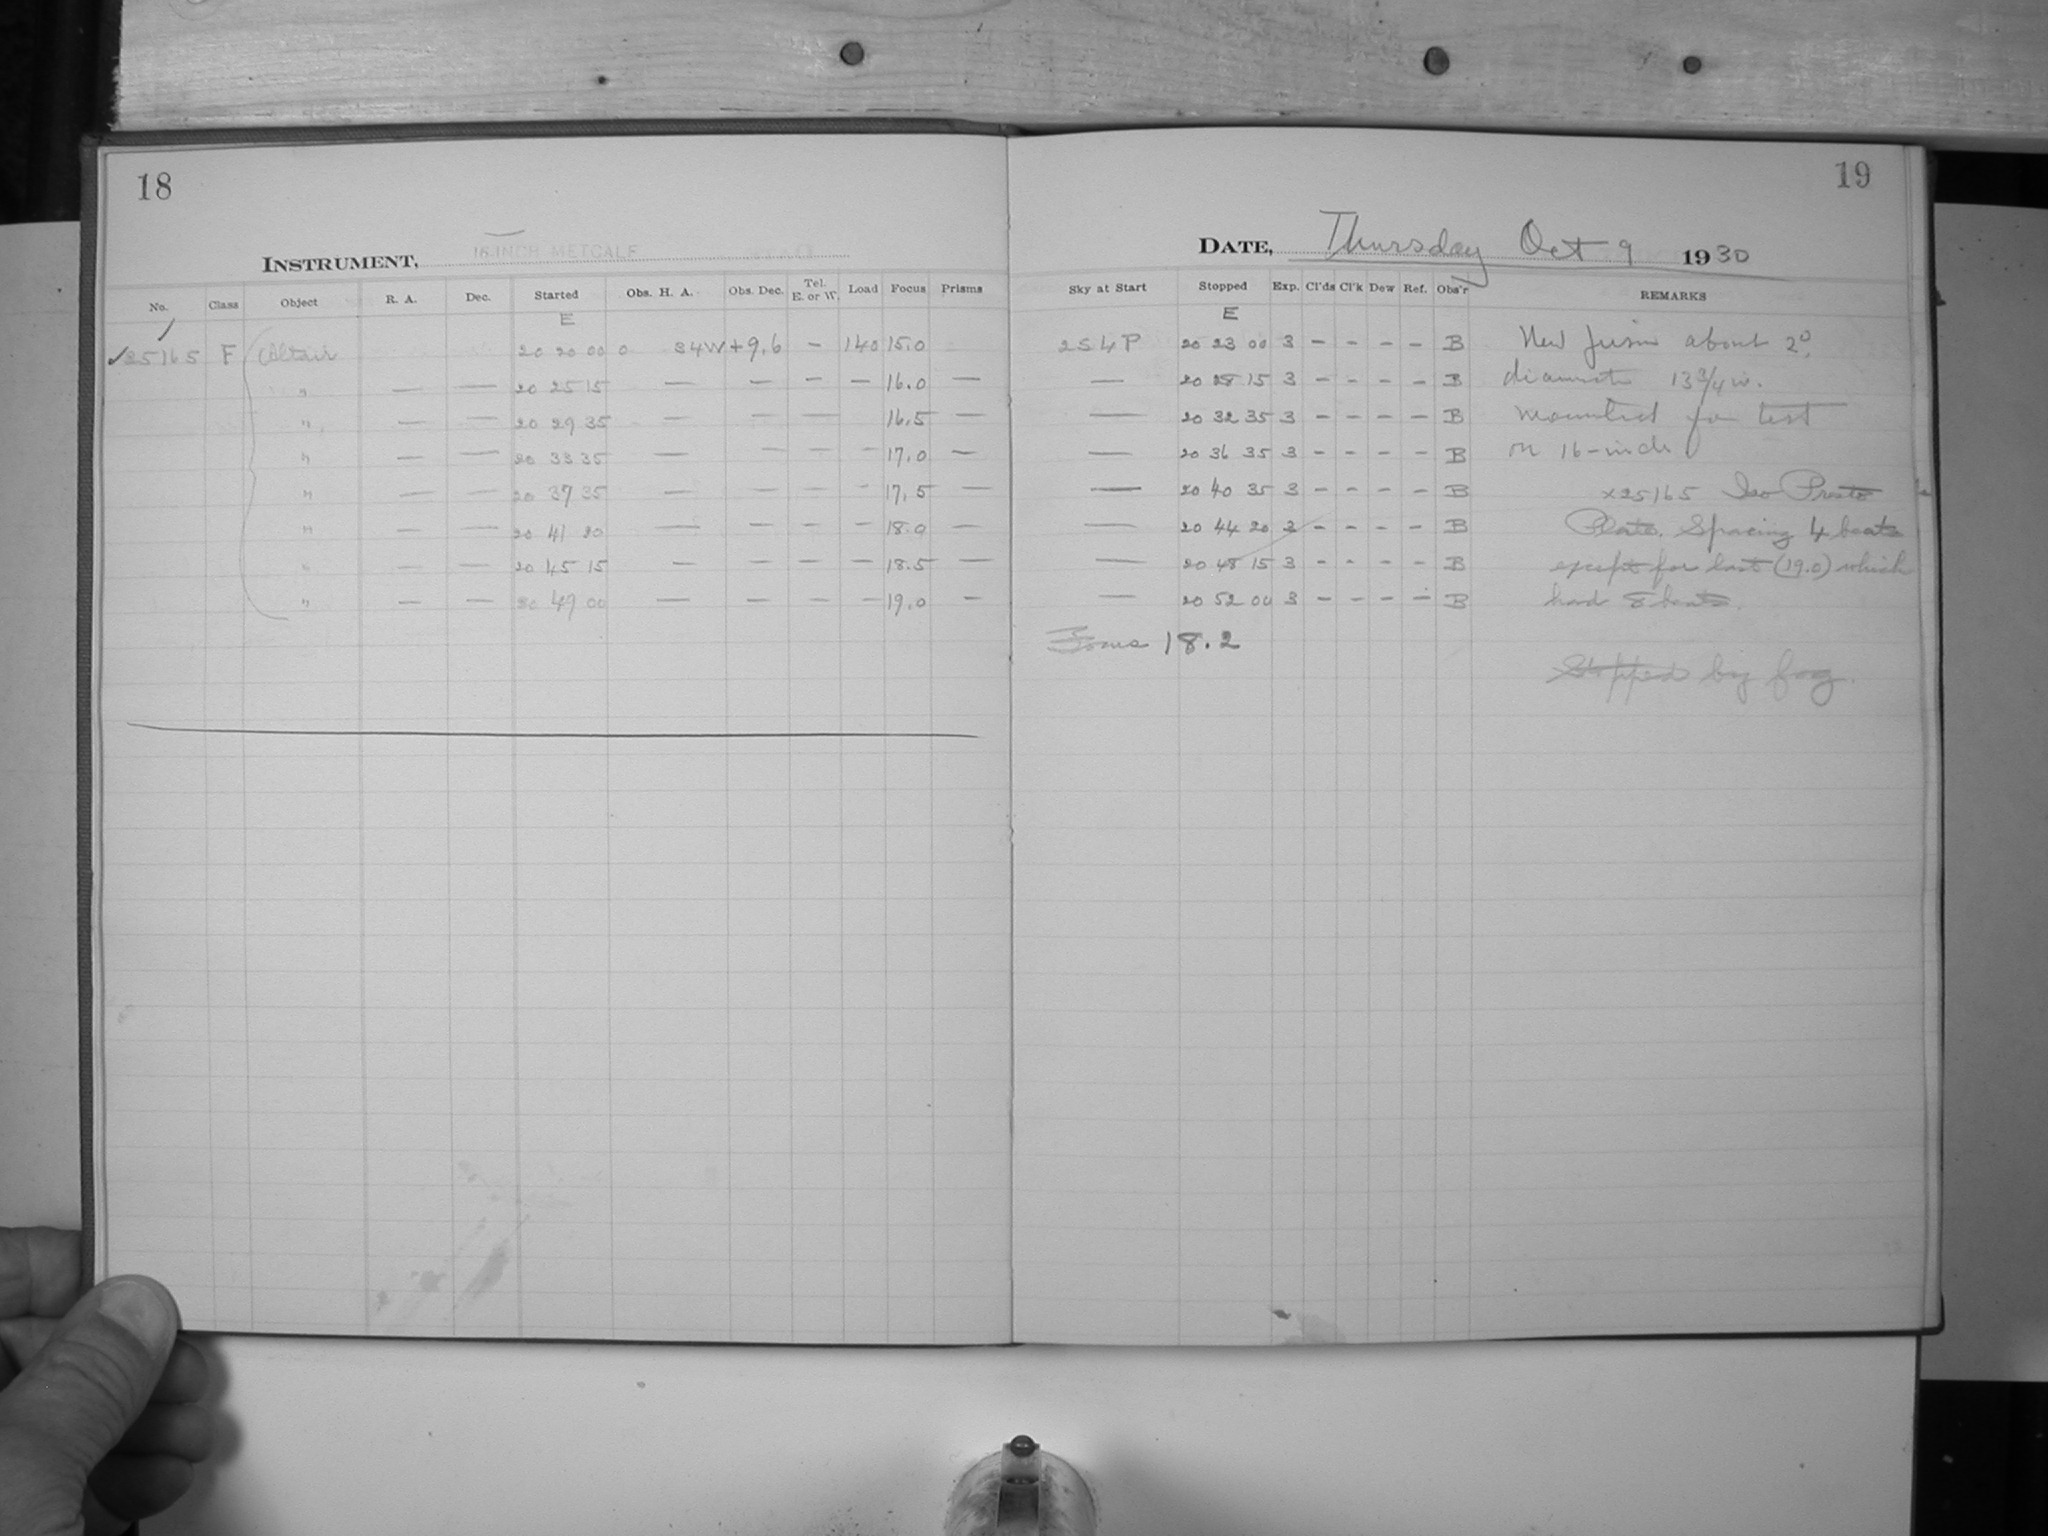 18
INSTRUMENT, 16-INCH METCALF
No. Class Object R. A. Dec. Started Obs. H. A. Obs. Dec. Tel. E. or W. Load Focus Prisms
E
✓25165 F Altair 20 20 00 0 34W +9.6 — 140 15.0
" — — 20 25 15 — — — — 16.0 —
" — — 20 29 35 — — — 16.5 —
" — — 20 33 35 — — — — 17.0 —
" — — 20 37 35 — — — — 17.5 —
" — — 20 41 20 — — — — 18.0 —
" — — 20 45 15 — — — — 18.5 —
" — — 20 49 00 — — — — 19.0 —
19
DATE, Thursday Oct 9 1930
Sky at Start Stopped Exp. Cl'ds Cl'k Dew Ref. Obs'r REMARKS
E
2S4P 20 23 00 3 – – – – B New prism about 2°.
— 20 28 15 3 – – – – B diameter 13 3/4 in.
— 20 32 35 3 – – – – B mounted for test
— 20 36 35 3 – – – – B on 16-inch
— 20 40 35 3 – – – – B ×25165 Iso Presto
— 20 44 20 3 – – – – B Plate. Spacing 4 beats
— 20 48 15 3 – – – – B except for last (19.0) which
— 20 52 00 3 – – – – B had 8 beats.
Focus 18.2
Stopped by fog.